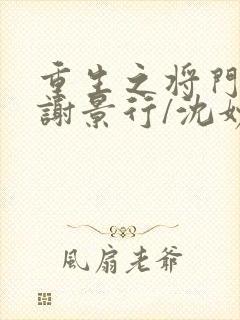 重生之將門
謝景行/沈妙
風扇老爺